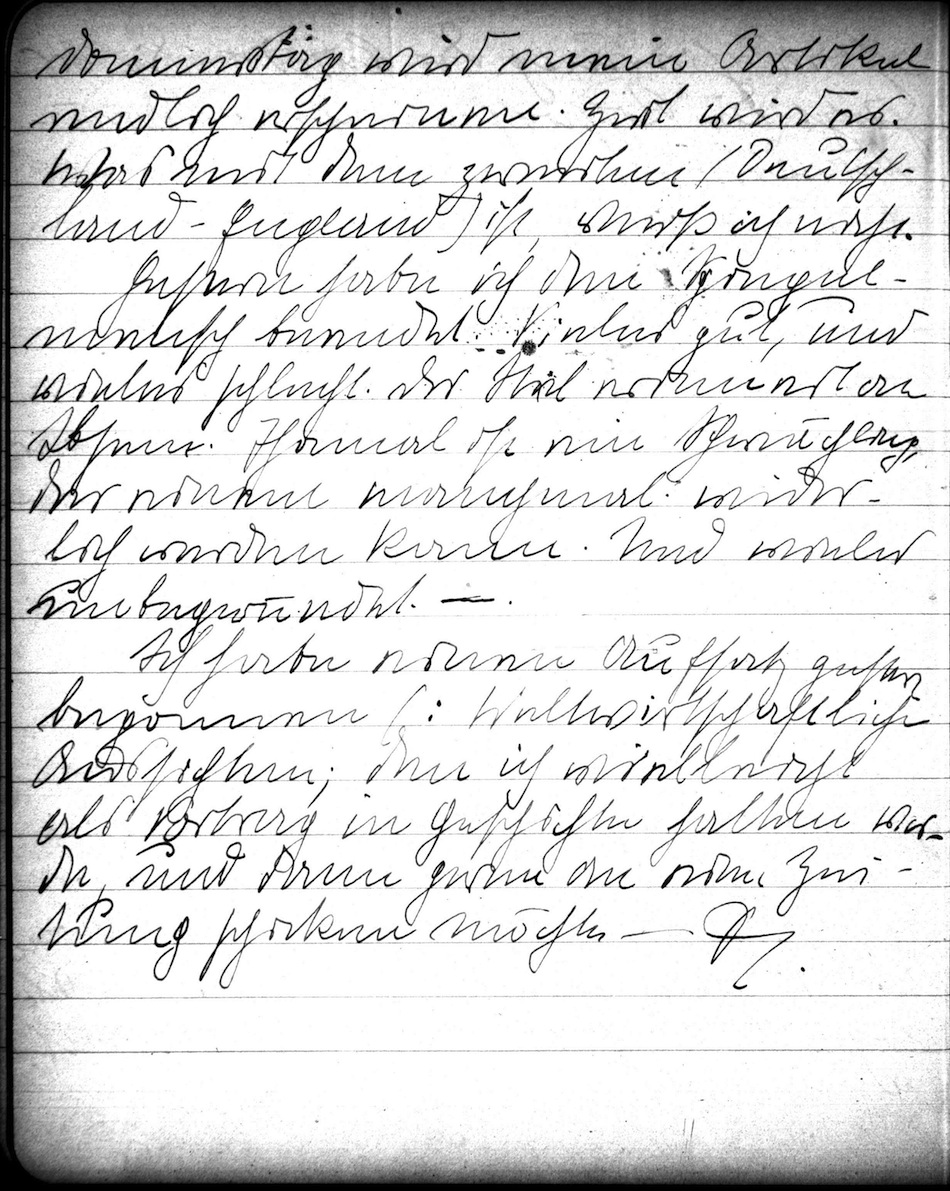 Donnerstag wird mein Artikel
endlich erscheinen. Zeit wird es.
Was mit dem zweiten (Deutsch-
land - England) ist, weiß ich nicht.
Gestern habe ich den Spiegel-
mensch beendet. Vieles gut, und
vieles schlecht. Der Stil erinnert an
Ibsen. Thamal ist ein Schwächling,
der einem manchmal wider-
lich werden kann. Und vieles
unbegründet. —.
Ich habe einen Aufsatz gestern
begonnen (: Weltwirtschaftliche
Aussichten; den ich vielleicht
als Vortrag in Geschichte halten wer-
de, und dann gerne an eine Zei-
tung schicken möchte —